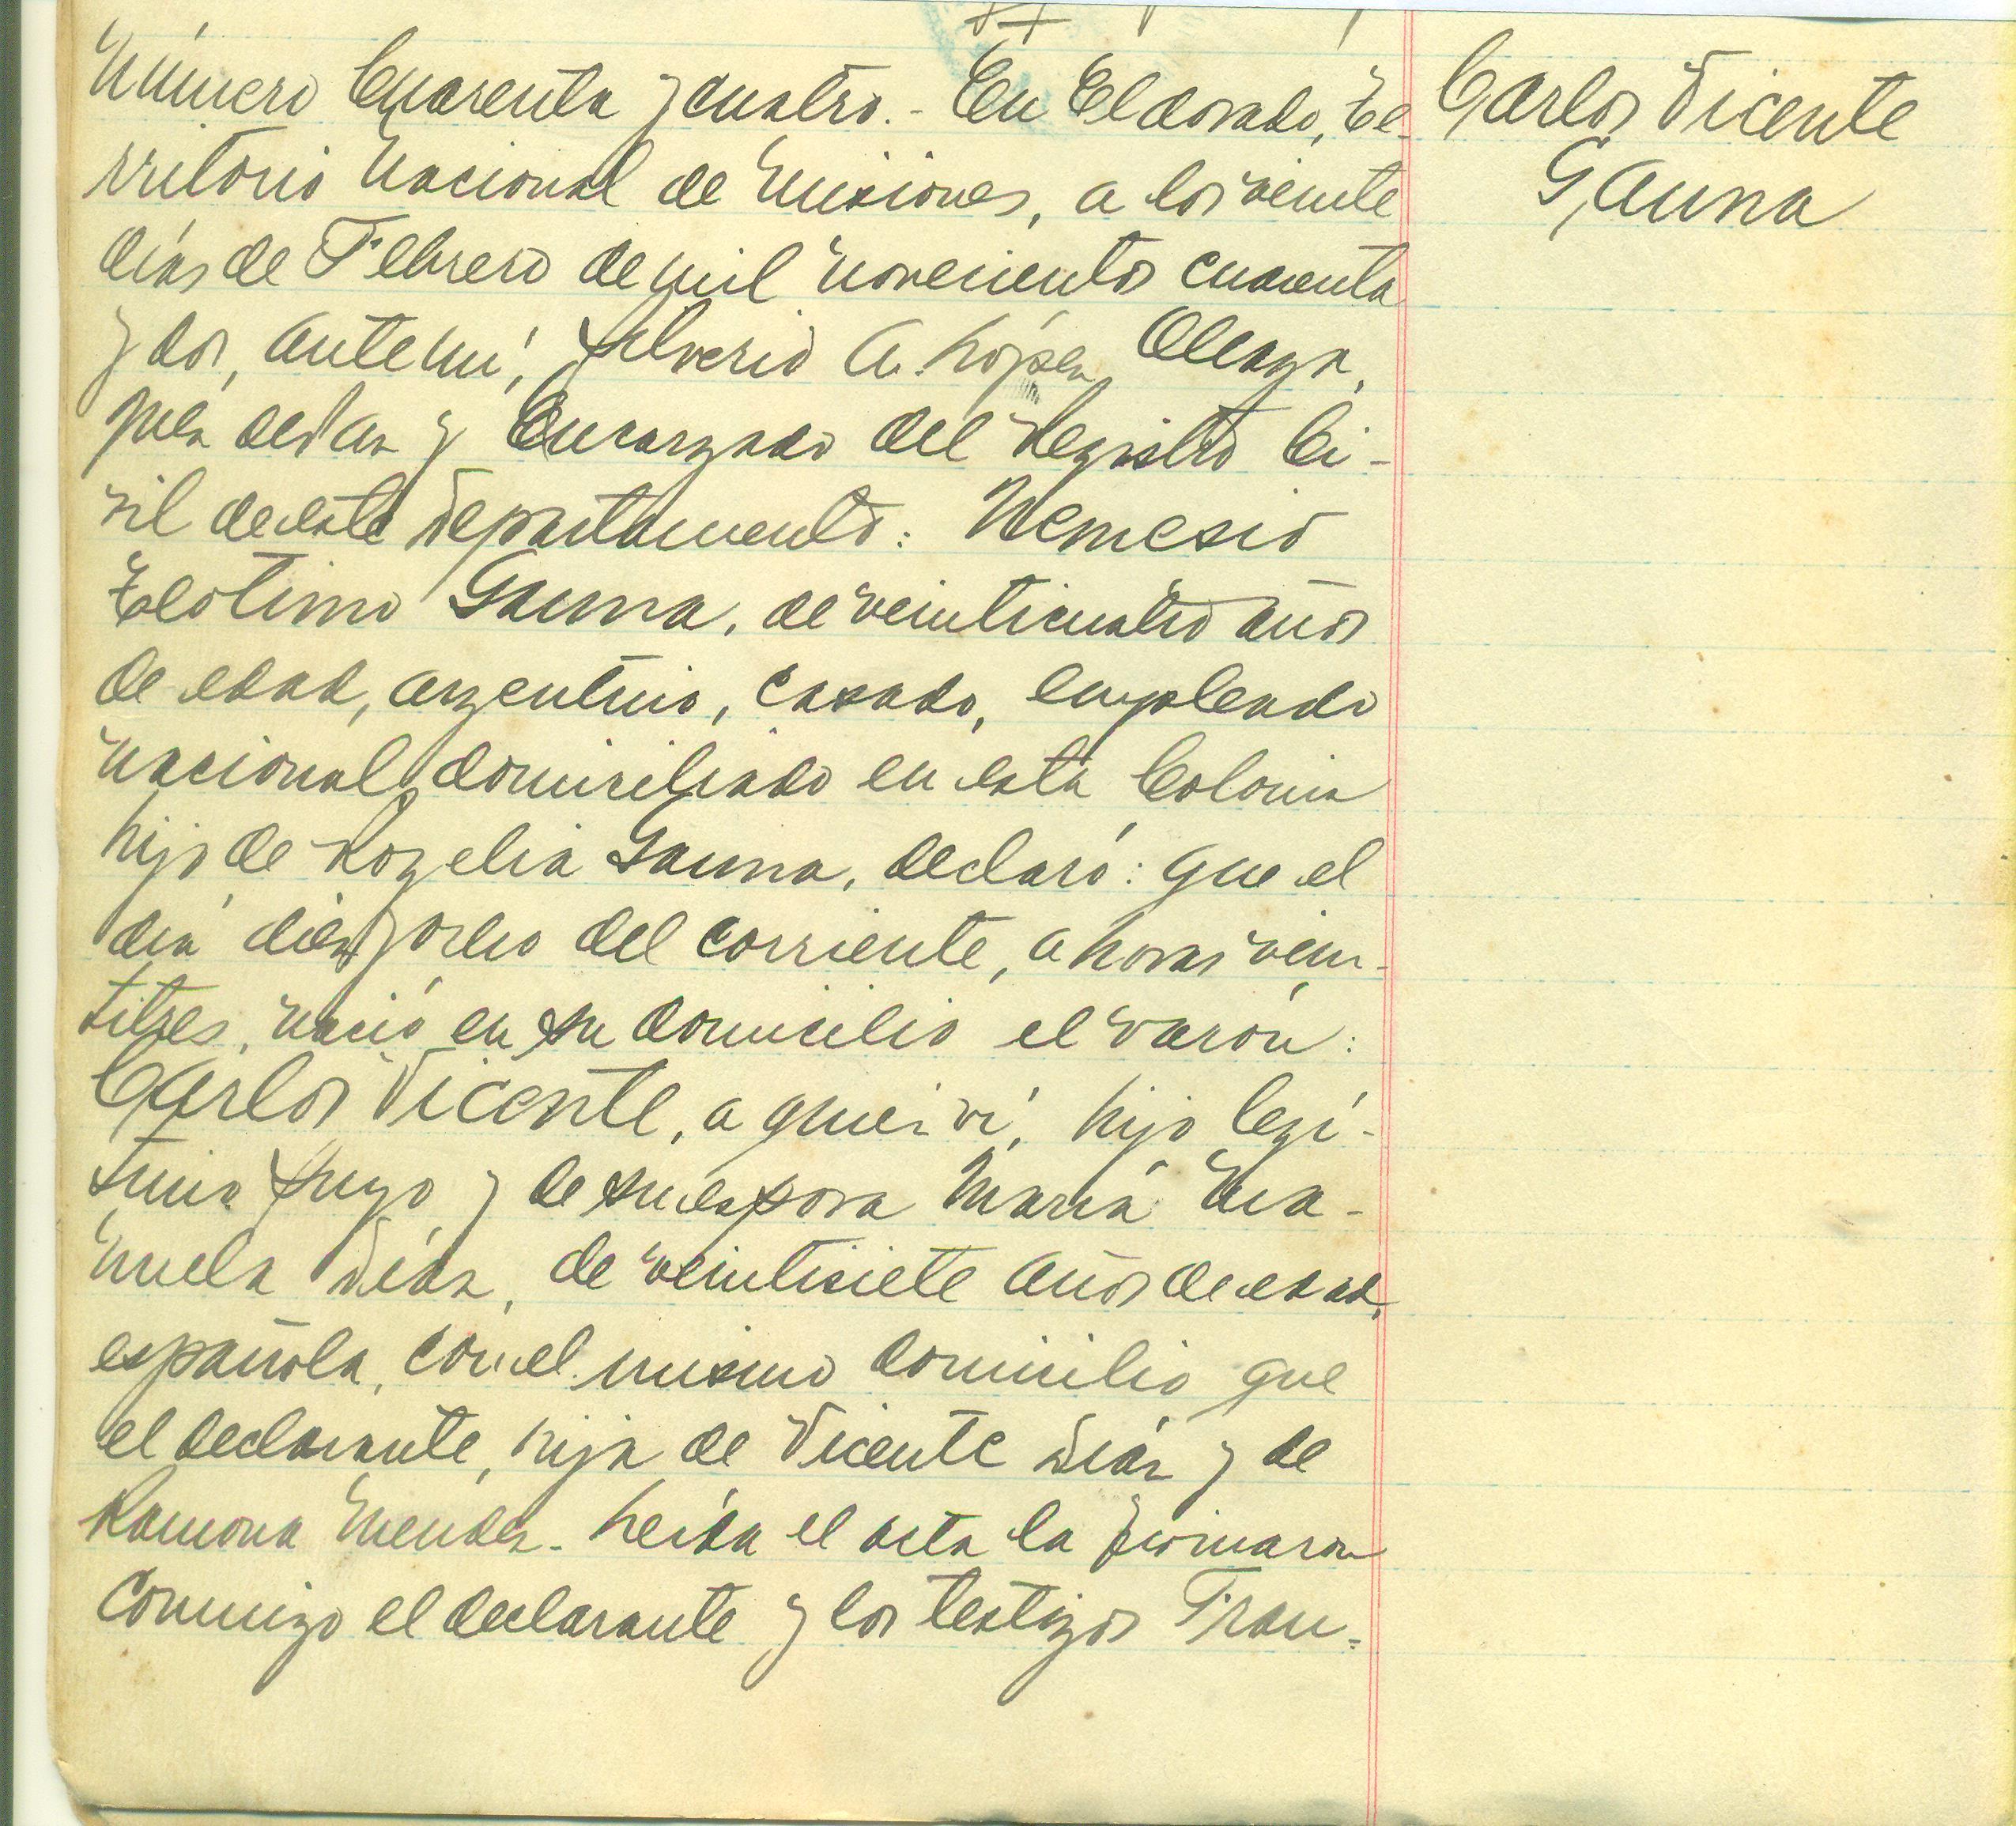 Número Cuarenta y cuatro.- En Eldorado, Te-
rritorio Nacional de Misiones, a los veinte
días de Febrero de mil novecientos cuarenta
y dos, ante mí, Silverio A. López Alegza,
Juez de Paz y Encargado del Registro Ci-
vil de este Departamento: Nemesio
Teotimo Gauna, de veinticuatro años
de edad, argentino, casado, empleado
nacional, domiciliado en esta Colonia
hijo de Rogelia Gauna, declaró: que el
día diez y ocho del corriente, a horas vein-
titres, nació en su domicilio el varón:
Carlos Vicente, a quien ví, hijo legí-
timo suyo y de su esposa María Ma-
nuela Díaz, de veintisiete años de edad,
española, con el mismo domicilio que
el declarante, hija de Vicente Díaz y de
Ramona Mendez.- Leída el acta la firmaron
conmigo el declarante y los testigos Fran-
Carlos Vicente
Gauna